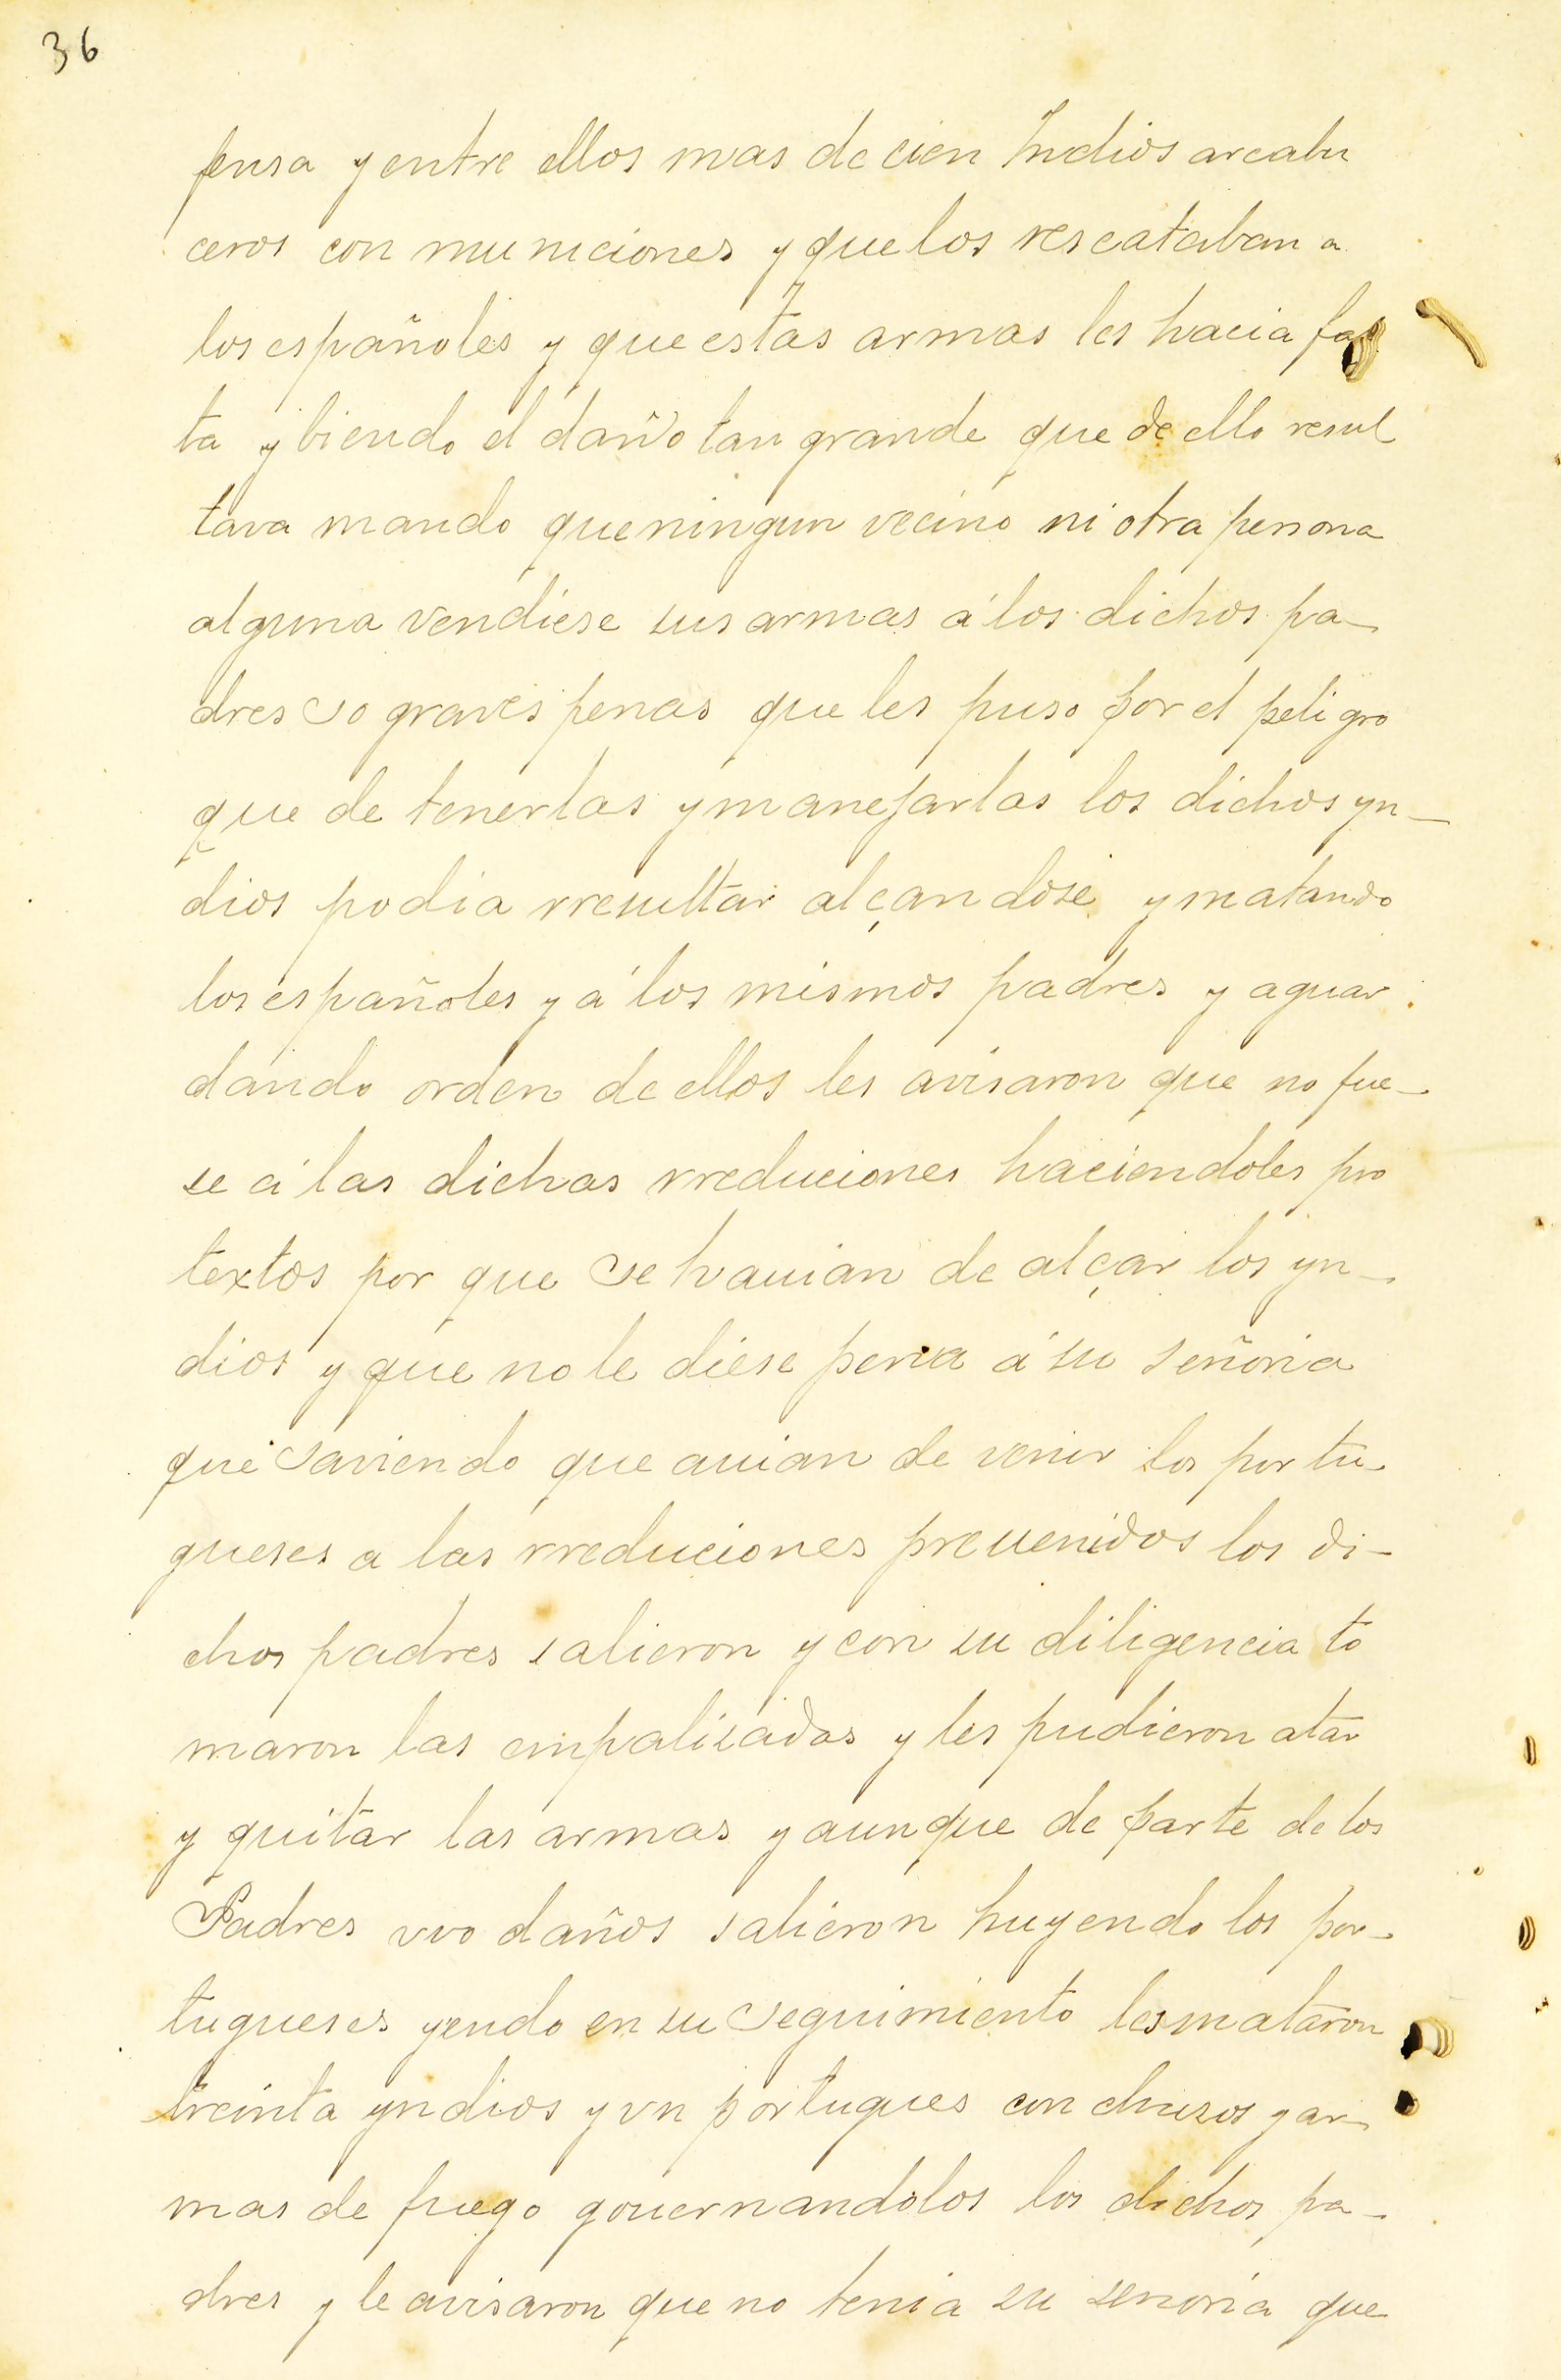 36
fensa y entre ellos mas de cien Indios arcabu
ceros con municiones y que los rescataban a
los españoles y que estas armas les hacia fal
ta y biendo el daño tan grande que de ello resul
tava mando que ningun vecino ni otra persona
alguna vendiese sus armas á los dichos pa-
dres so graves penas que les puso por el peligro
que de tenerlas y manejarlas los dichos yn-
dios podia rresultar alçandose y matando
los españoles y á los mismos padres y aguar
dando orden de ellos les avisaron que no fue-
se á las dichas rreduciones haciendoles pro
textos por que se hauian de alçar los yn-
dios y que no le diese pena á su señoria
que saviendo que auian de venir los portu-
gueses a las rreduciones preuenidos los di-
chos padres salieron y con su diligencia to
maron las empalisadas y les pudieron atar
y quitar las armas y aunque de parte de los
Padres vvo daños salieron huyendo los por-
tugueses yendo en su seguimiento les mataron
treinta yndios y vn portugues con chusos y ar-
mas de fuego gouernandolos los dichos pa-
dres y le avisaron que no tenia su senoria que